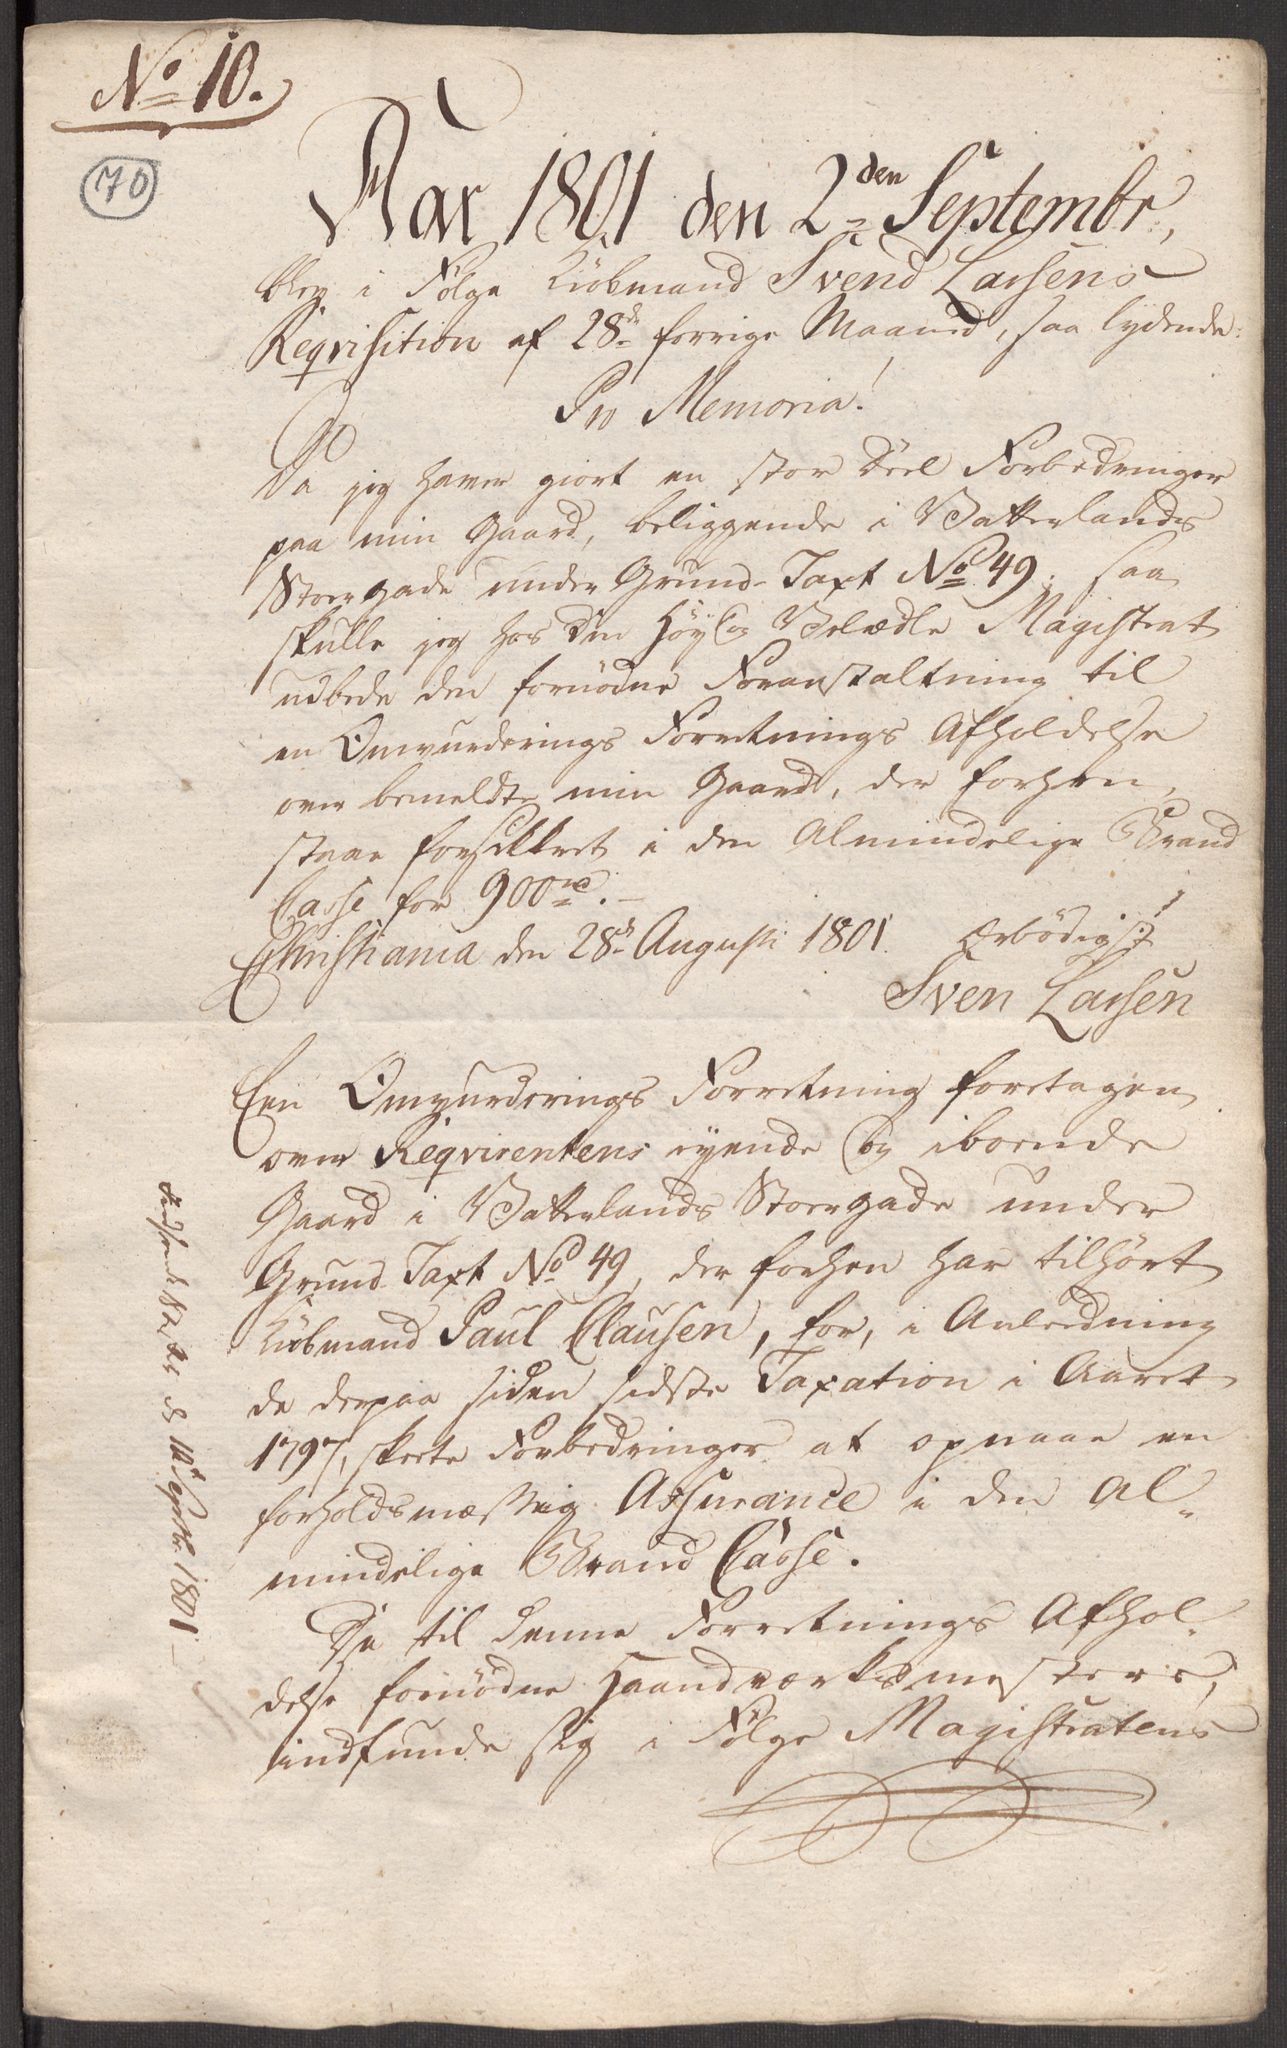 No 10.
70
Aar 1801 den 2den Septembr,
blev i Følge Kiøbmand Svend Larsens
Reqvisition af 28de forrige Maaned, saa lydende:
Pro Memoria!
Da jeg haver giort en stor Deel Forbedringer
paa min Gaard, beliggende i Vatterlands
Stoergade under Grund-Taxt No 49, saa
skulle jeg hos Den Høy og Velædle Magistrat
udbede den fornødne Foranstaltning til
en Omvurderings Forretnings Afholdelse
over bemeldte min Gaard, der forhen
staar forsikkret i den Almindelige Brand
Casse for 900 rd. –
Christiania den 28de Augusti 1801. Ærbødigst
Sven Larsen
Een Omvurderings Forretning foretagen
over Reqvirentens eyende og iboende
Gaard i Vatterlands Stoergade under
Grund Taxt No 49, der forhen har tilhørt
Kiøbmand Paul Clausen, for, i Anledning
de derpaa siden sidste Taxation i Aaret
1797, skeete Forbedringer at opnaae en
forholdsmæssig Assurance i den Al-
mindelige Brand Casse.
De til denne Forretnings Afhol-
delse fornødne Haandværksmestere,
indfunde sig i Følge Magistratens
d 10de Septbr. 1801